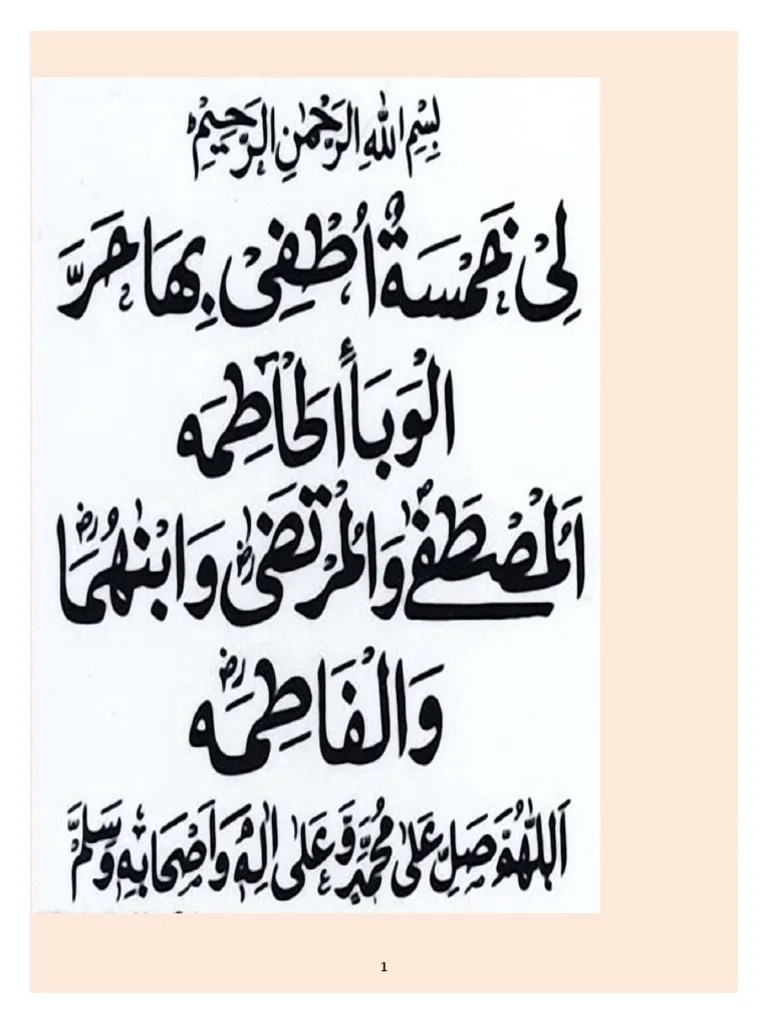 بِسْمِ اللهِ الرَّحْمٰنِ الرَّحِيْمِ
لِيْ خَمْسَةٌ اُطْفِيْ بِهَا حَرَّ
الْوَبَاءِ الْحَاطِمَه
اَلْمُصْطَفٰےؐ وَالْمُرْتَضٰىؓ وَابْنٰهُمَاؓ
وَالْفَاطِمَهؓ
اَللّٰهُمَّ صَلِّ عَلٰى مُحَمَّدٍ وَّعَلٰى اٰلِهٖ وَاَصْحَابِهٖ وَسَلِّمْ
1